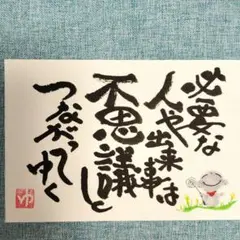 必要な
人や出来事は
不思議と
つながってゆく